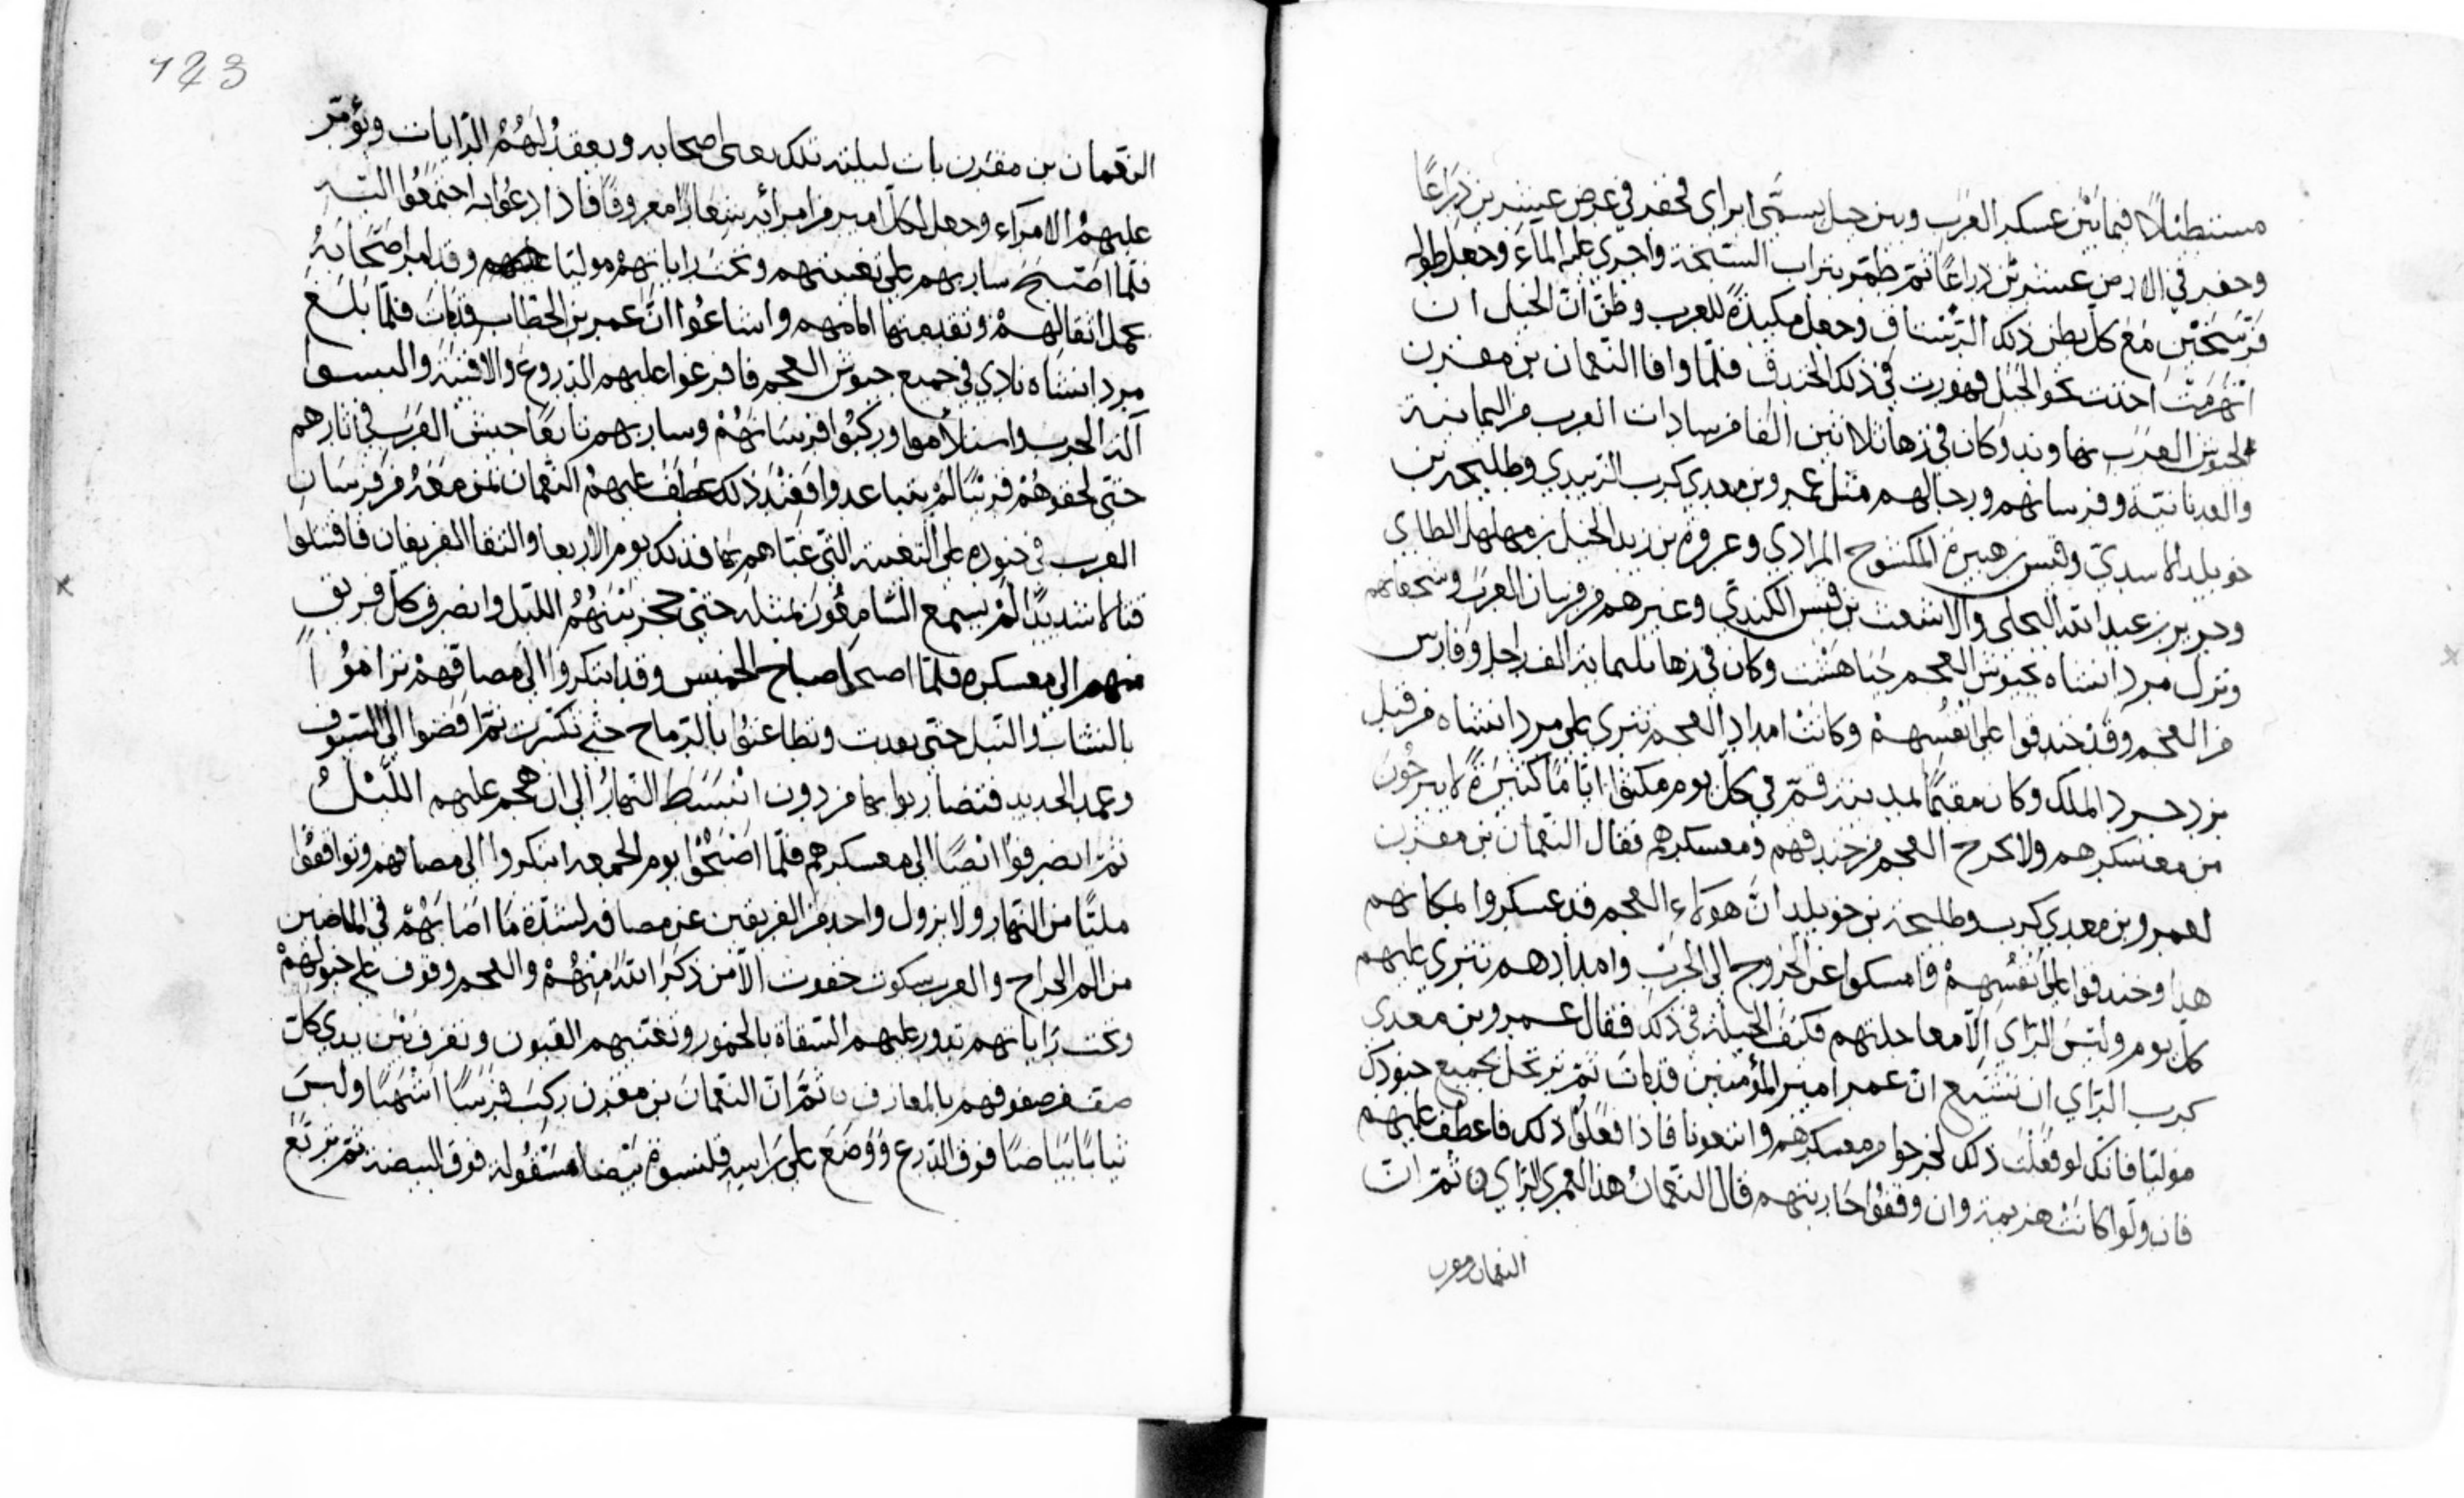 مستطيلا فيما بين عسكر العرب وبين جبل يسمى ابراي فحفر في عرض عشرين ذراعًا
وحفر في الارض عشرين ذراعًا ثم طمّه بتراب السبخة واجرى عليه الماء وجعل طوله
فرسخين مع كل بطن ذلك وجعل مكيدةً للعرب وظنّ انّ الخيل ان
انهزمت اخذت نحو الجبل فهورت في ذلك الخندق فلمّا وافا النعمان بن مقرن
بجيوش العرب نهاوند وكان في زها ثلاثين الفا من سادات العرب من اليمانية
والعدنانية وفرسانهم ورجالهم مثل عمرو بن معدي كرب الزبيدي وطليحة بن
خويلد الاسديّ وقيس بن هبيرة المكشوح المرادي وعروة بن زيد الخيل بن مهلهل الطاى
وجرير بن عبد الله البجلى والاشعث بن قيس الكنديّ وغيرهم من فرسان العرب وشجعانهم
ونزل مردانشاه بجيوش العجم وكان في زها ثلثماية الف راجل وفارس
من العجم وقد خندقوا على انفسهم وكانت امداد العجم تترى على مردانشاه من قبل
يزدجرد الملك وكان مقيمًا بمدينة قمّ في كل يوم فمكثوا ايّامًا كثيرةً لا يبرحون
من معسكرهم ولا يخرج العجم من خندقهم ومعسكرهم فقال النعمان بن مقرن
لعمرو بن معدي كرب وطليحة بن خويلد انّ هولاء العجم قد عسكروا بمكانهم
هذا وخندقوا على انفسهم وامسكوا عن الخروج الى الحرب وامدادهم تترى عليهم
كل يوم وليس الراى الّا معاجلتهم فكيف الحيلة في ذلك فقال عمرو بن معدى
كرب الراي ان تشيع انّ عمر امير المؤمنين قد مات ثم ترتحل بجميع جنودك
موليًا فانك لو فعلت ذلك لخرجوا من معسكرهم واتبعونا فاذا فعلوا ذلك فاعطف عليهم
فان ولّوا كانت هزيمة وان وقفوا حاربتهم قال النعمان هذا لعمرى الراي ثم انّ
النعمان بن مقرن
123
النعمان بن مقرن بات ليلته تلك يعبى اصحابه ويعقد لهم الرايات ويؤمّر
عليهم الامراء وجعل لكل امير من امرائه شعارًا معروفًا فاذا دعوا به اجتمعوا اليه
فلمّا اصبح سار بهم على تعبيتهم وتحت راياتهم موليًا وقد امر اصحابه
بحمل اثقالهم وتقديمها امامهم واشاعوا انّ عمر بن الخطاب قد مات فلمّا بلغ
مردانشاه نادي في جميع جيوش العجم فافرغوا عليهم الدروع والاقبية والبسوا
آلة الحرب واستلأموا وركبوا فرسانهم وسار بهم تابعًا جيش العرب في اثارهم
حتى لحقوهم قريبًا لم يتباعدوا فعند ذلك عطف عليهم النعمان بمن معه من فرسان
العرب في جنوده على التعبية التي عبّاهم بها فذلك يوم الاربعا والتقا الفريقان فاقتتلوا
قتالا شديدًا لم يسمع السامعون بمثله حتى حجز بينهم الليل وانصرف كل فريق
منهم الى معسكره فلمّا اصبحوا صباح الخميس وقد ابتكروا الى مصافّهم تراموا
بالنشاب والنبل حتى نفدت وتطاعنوا بالرماح حتى تكسّرت ثم افضوا الى السيوف
وعمد الحديد فتضاربوا بها من دون انبساط النهار الى ان هجم عليهم الليل
ثم انصرفوا ايضًا الى معسكرهم فلمّا اصبحوا يوم الجمعه ابتكروا الى مصافهم وتواقفوا
مليًّا من النهار ولا يزول واحد من الفريقين عن مصافه لشدّة ما اصابهم في الماضيين
من الم الجراح والعرب سكوت خفوت الّا من ذكر الله منهم والعجم وقوف على خيولهم
وتحت راياتهم تدور عليهم السقاة بالخمور وتغنيهم القيون وتعزف بين يدي كلّ
صف من صفوفهم بالمعازف ثم انّ النعمان بن مقرن ركب فرسًا اشهبًا ولبس
ثيابًا بياضًا فوق الدرع ووضع على راسه قلنسوة بيضا مصقولة فوق البيضة ثم تربّع